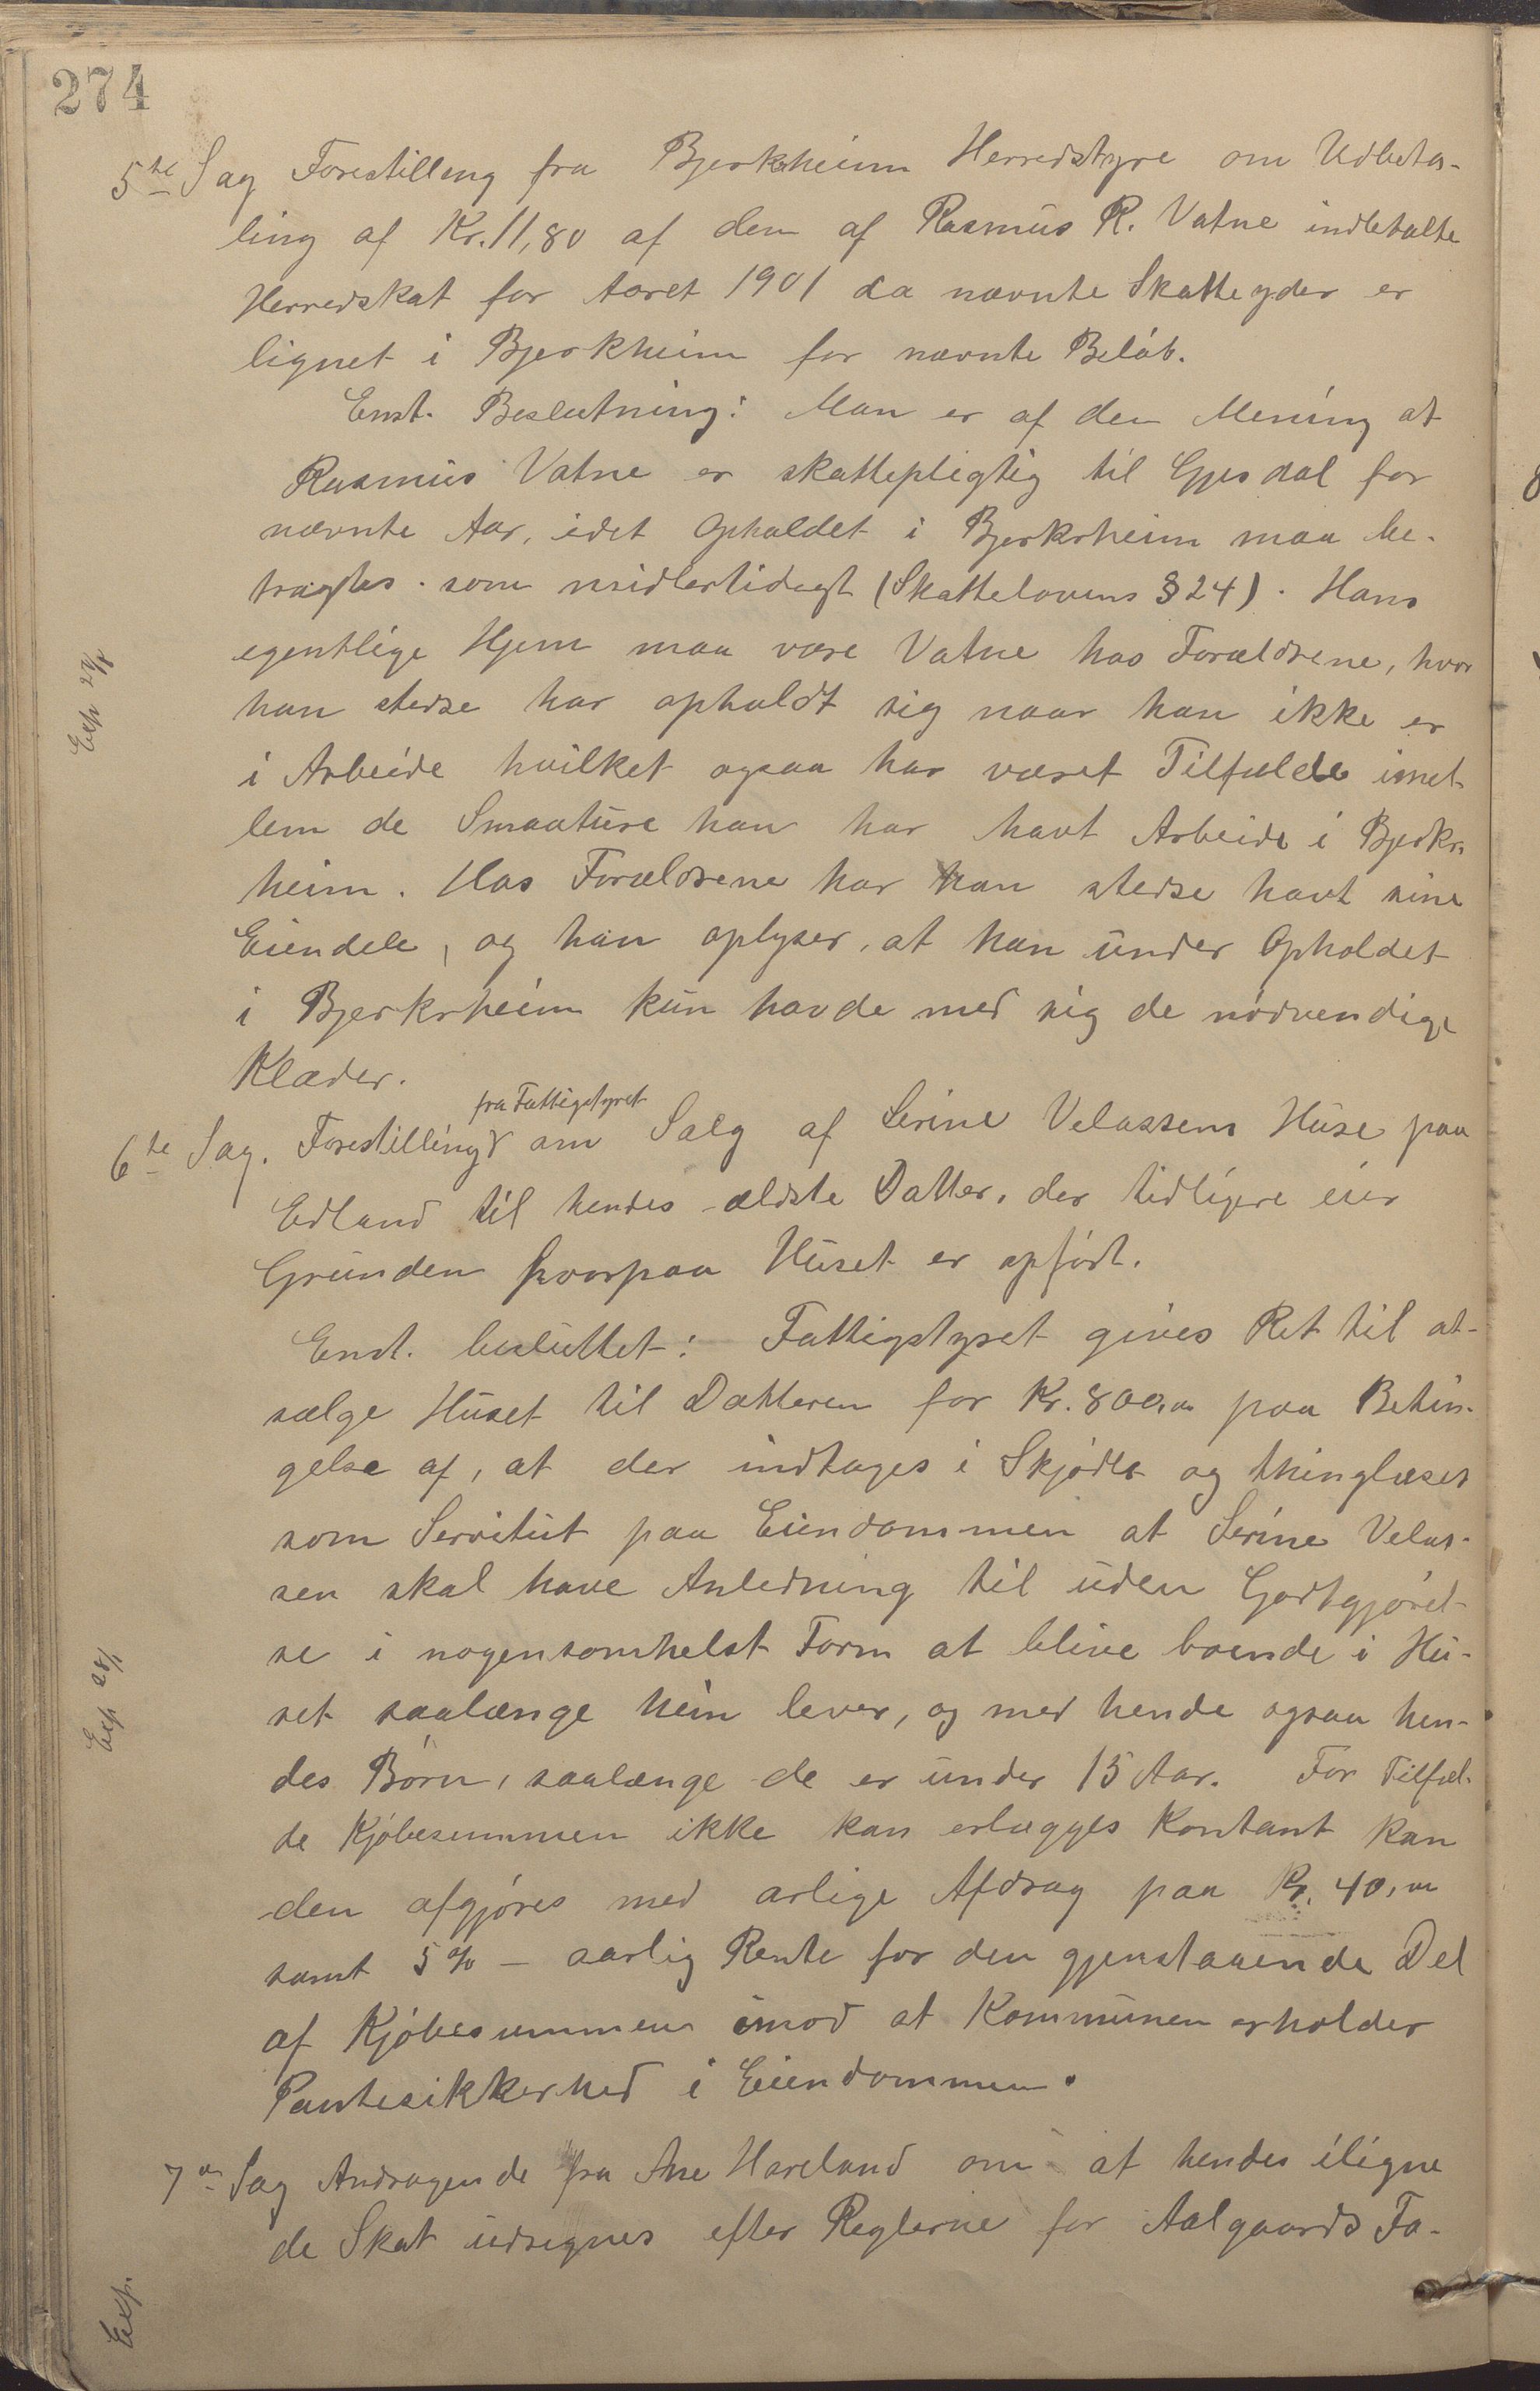 274
5te Sag Forestilling fra Bjerkrheim Herredstyre om Udbeta-
ling af Kr. 11,80 af den af Rasmus R. Vatne indbetalte
Herredskat for Aaret 1901 da nævnte Skatteyder er
lignet i Bjerkheim for nævnte Beløb.
Enst. Beslutning: Man er af den Mening at
Rasmus Vatne er skattepligtig til Gjesdal for
nævnte Aar, idet Opholdet i Bjerkrheim maa be-
tragtes som midlertidigt (Skattelovens § 24). Hans
egentlige Hjem maa være Vatne hos Forældrene, hvor
han stedse har opholdt sig naar han ikke er
i Arbeide hvilket ogsaa har været Tilfælde imel-
lem de Smaature han har havt Arbeide i Bjerkr-
heim. Hos Forældrene har han stedse havt sine
Eiendele, og han oplyser, at han under Opholdet
i Bjerkrheim kun havde med sig de nødvendige
Klæder.
Exp 28/1
fra Fattigstyret
6te Sag. Forestilling om Salg af Serine Velassens Huse paa
Edland til hendes ældste Datter, der tidligere eier
Grunden hvorpaa Huset er opført.
Enst. besluttet: Fattigstyret gives Ret til at
sælge Huset til Datteren for Kr. 800,00 paa Betin-
gelse af, at der indtages i Skjødet og thinglæses
som Servitut paa Eiendommen at Serine Velas-
sen skal have Anledning til uden Godtgjørel-
se i nogensomhelst Form at blive boende i Hu-
set saalænge hun lever, og med hende ogsaa hen-
des Børn, saalænge de er under 15 Aar. For Tilfæl-
de Kjøbesummen ikke kan erlægges Kontant kan
den afgjøres med arlige Afdrag paa Kr. 40,00
samt 5 % - aarlig Rente for den gjenstaaende Del
af Kjøbesummen imod at Kommunen erholder
Pantesikkerhed i Eiendommen.
Exp 28/1
7de Sag Andragende fra Ane Haveland om at hendes iligne
de Skat udregnes efter Reglerne for Aalgaards Fa-
Exp.